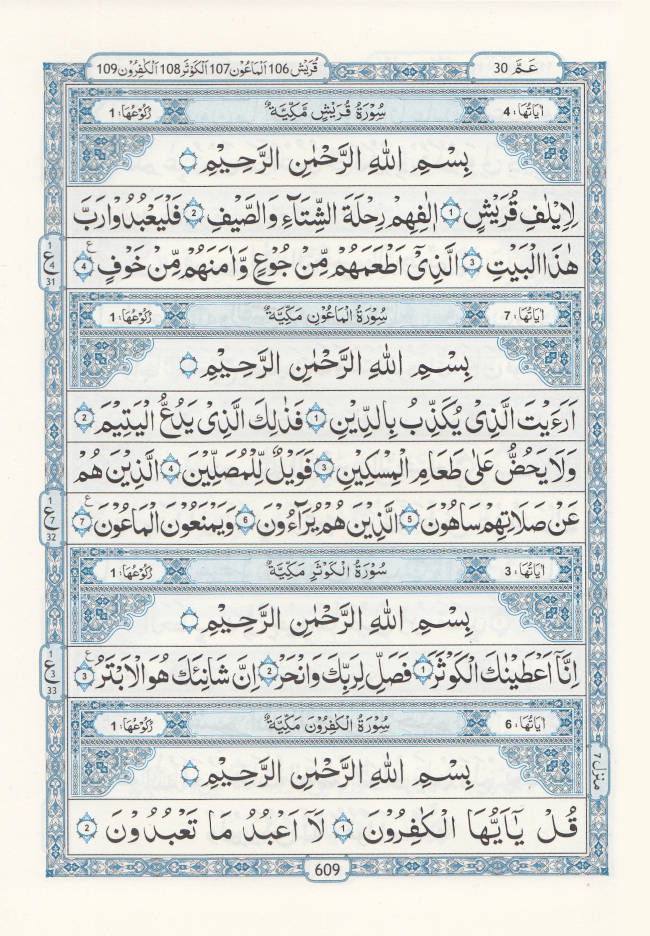 عَمَّ 30
قُرَيْش 106 اَلْمَاعُوْن 107 اَلْكَوْثَر 108 اَلْكٰفِرُوْن 109
اٰيَاتُهَا: 4 سُوْرَةُ قُرَيْشٍ مَّكِّيَّةٌ رُكُوْعُهَا: 1
بِسْمِ اللّٰهِ الرَّحْمٰنِ الرَّحِيْمِ
لِاِيْلٰفِ قُرَيْشٍ 1 اٖلٰفِهِمْ رِحْلَةَ الشِّتَآءِ وَالصَّيْفِ 2 فَلْيَعْبُدُوْا رَبَّ
هٰذَا الْبَيْتِ 3 الَّذِيْٓ اَطْعَمَهُمْ مِّنْ جُوْعٍ وَّاٰمَنَهُمْ مِّنْ خَوْفٍ ع 4
1
ع
4
31
اٰيَاتُهَا: 7 سُوْرَةُ الْمَاعُوْنِ مَكِّيَّةٌ رُكُوْعُهَا: 1
بِسْمِ اللّٰهِ الرَّحْمٰنِ الرَّحِيْمِ
اَرَءَيْتَ الَّذِيْ يُكَذِّبُ بِالدِّيْنِ 1 فَذٰلِكَ الَّذِيْ يَدُعُّ الْيَتِيْمَ 2
وَلَا يَحُضُّ عَلٰى طَعَامِ الْمِسْكِيْنِ 3 فَوَيْلٌ لِّلْمُصَلِّيْنَ 4 الَّذِيْنَ هُمْ
عَنْ صَلَاتِهِمْ سَاهُوْنَ 5 الَّذِيْنَ هُمْ يُرَآءُوْنَ 6 وَيَمْنَعُوْنَ الْمَاعُوْنَ ع 7
1
ع
7
32
اٰيَاتُهَا: 3 سُوْرَةُ الْكَوْثَرِ مَكِّيَّةٌ رُكُوْعُهَا: 1
بِسْمِ اللّٰهِ الرَّحْمٰنِ الرَّحِيْمِ
اِنَّآ اَعْطَيْنٰكَ الْكَوْثَرَ 1 فَصَلِّ لِرَبِّكَ وَانْحَرْ 2 اِنَّ شَانِئَكَ هُوَ الْاَبْتَرُ ع 3
1
ع
3
33
اٰيَاتُهَا: 6 سُوْرَةُ الْكٰفِرُوْنَ مَكِّيَّةٌ رُكُوْعُهَا: 1
بِسْمِ اللّٰهِ الرَّحْمٰنِ الرَّحِيْمِ
قُلْ يٰٓاَيُّهَا الْكٰفِرُوْنَ 1 لَآ اَعْبُدُ مَا تَعْبُدُوْنَ 2
منزل 7
609